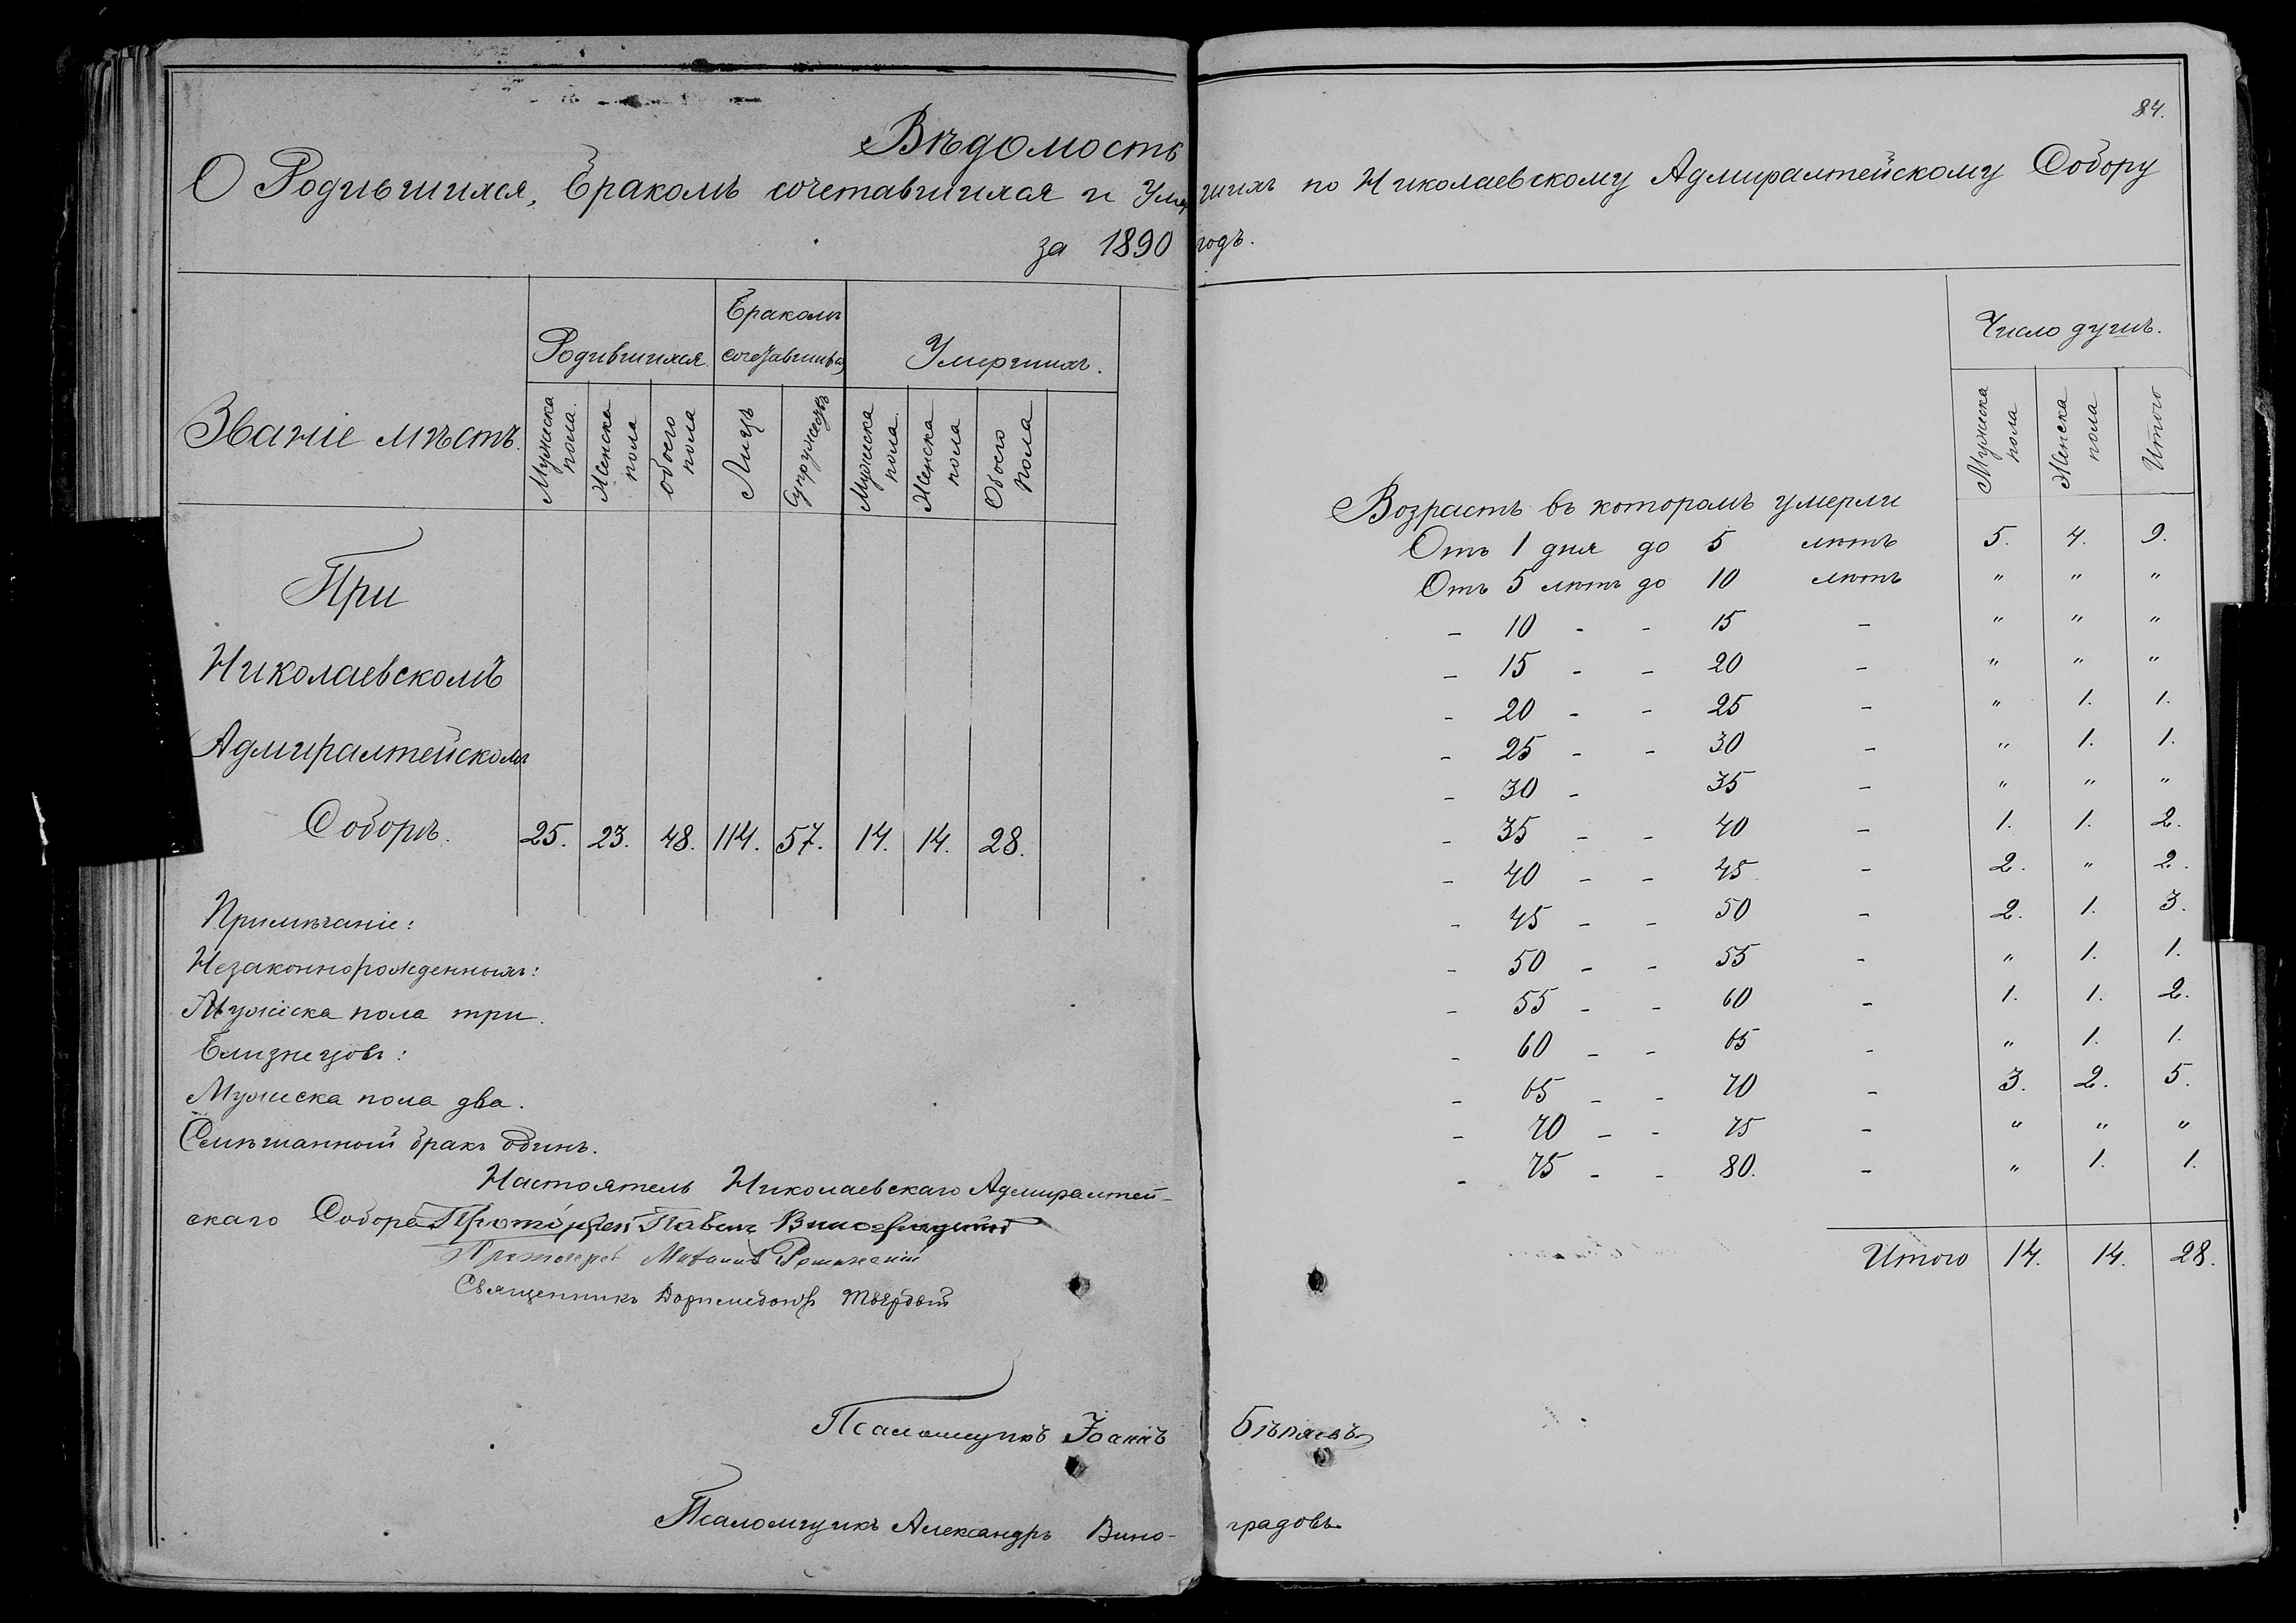 84.
Вѣдомость
О Родившихся, Бракомъ сочетавшихся и Умершихъ по Николаевскому Адмиралтейскому Собору
за 1890 годъ.
Званіе мѣстъ.
Родившихся
Бракомъ сочетавшихся
Умершихъ.
Мужска пола.
Женска пола
обоего пола
Лицъ
Супружествъ
Мужска пола.
Женска пола
Обоего пола
При
Николаевскомъ
Адмиралтейскомъ
Соборѣ. 25. 23. 48. 114. 57. 14. 14. 28.
Примѣчаніе:
Незаконнорожденныхъ:
Мужска пола три.
Близнецовъ:
Мужска пола два.
Смѣшанный бракъ одинъ.
Настоятель Николаевскаго Адмиралтей-
скаго Собора Протоіерей Павелъ
Протоіерей
Священникъ Доримедонтъ Твердый
Псаломщикъ Іоаннъ Бѣляевъ
Псаломщикъ Александръ Вино- градовъ
Число душъ.
Мужска пола
Женска пола
Итого
Возрастъ въ которомъ умерли
Отъ 1 дня до 5 лѣтъ 5. 4. 9.
Отъ 5 лѣтъ до 10 лѣтъ " " "
- 10 - - 15 - " " "
- 15 - - 20 - " " "
- 20 - - 25 - " 1. 1.
- 25 - - 30 - " 1. 1.
- 30 - 35 - " " "
- 35 - - 40 - 1. 1. 2.
- 40 - - 45 - 2. " 2.
- 45 - - 50 - 2. 1. 3.
- 50 - - 55 - " 1. 1.
- 55 - - 60 - 1. 1. 2.
- 60 - - 65 - " 1. 1.
- 65 - - 70 - 3. 2. 5.
- 70 - - 75 - " " "
- 75 - - 80. - " 1. 1.
Итого 14. 14. 28.